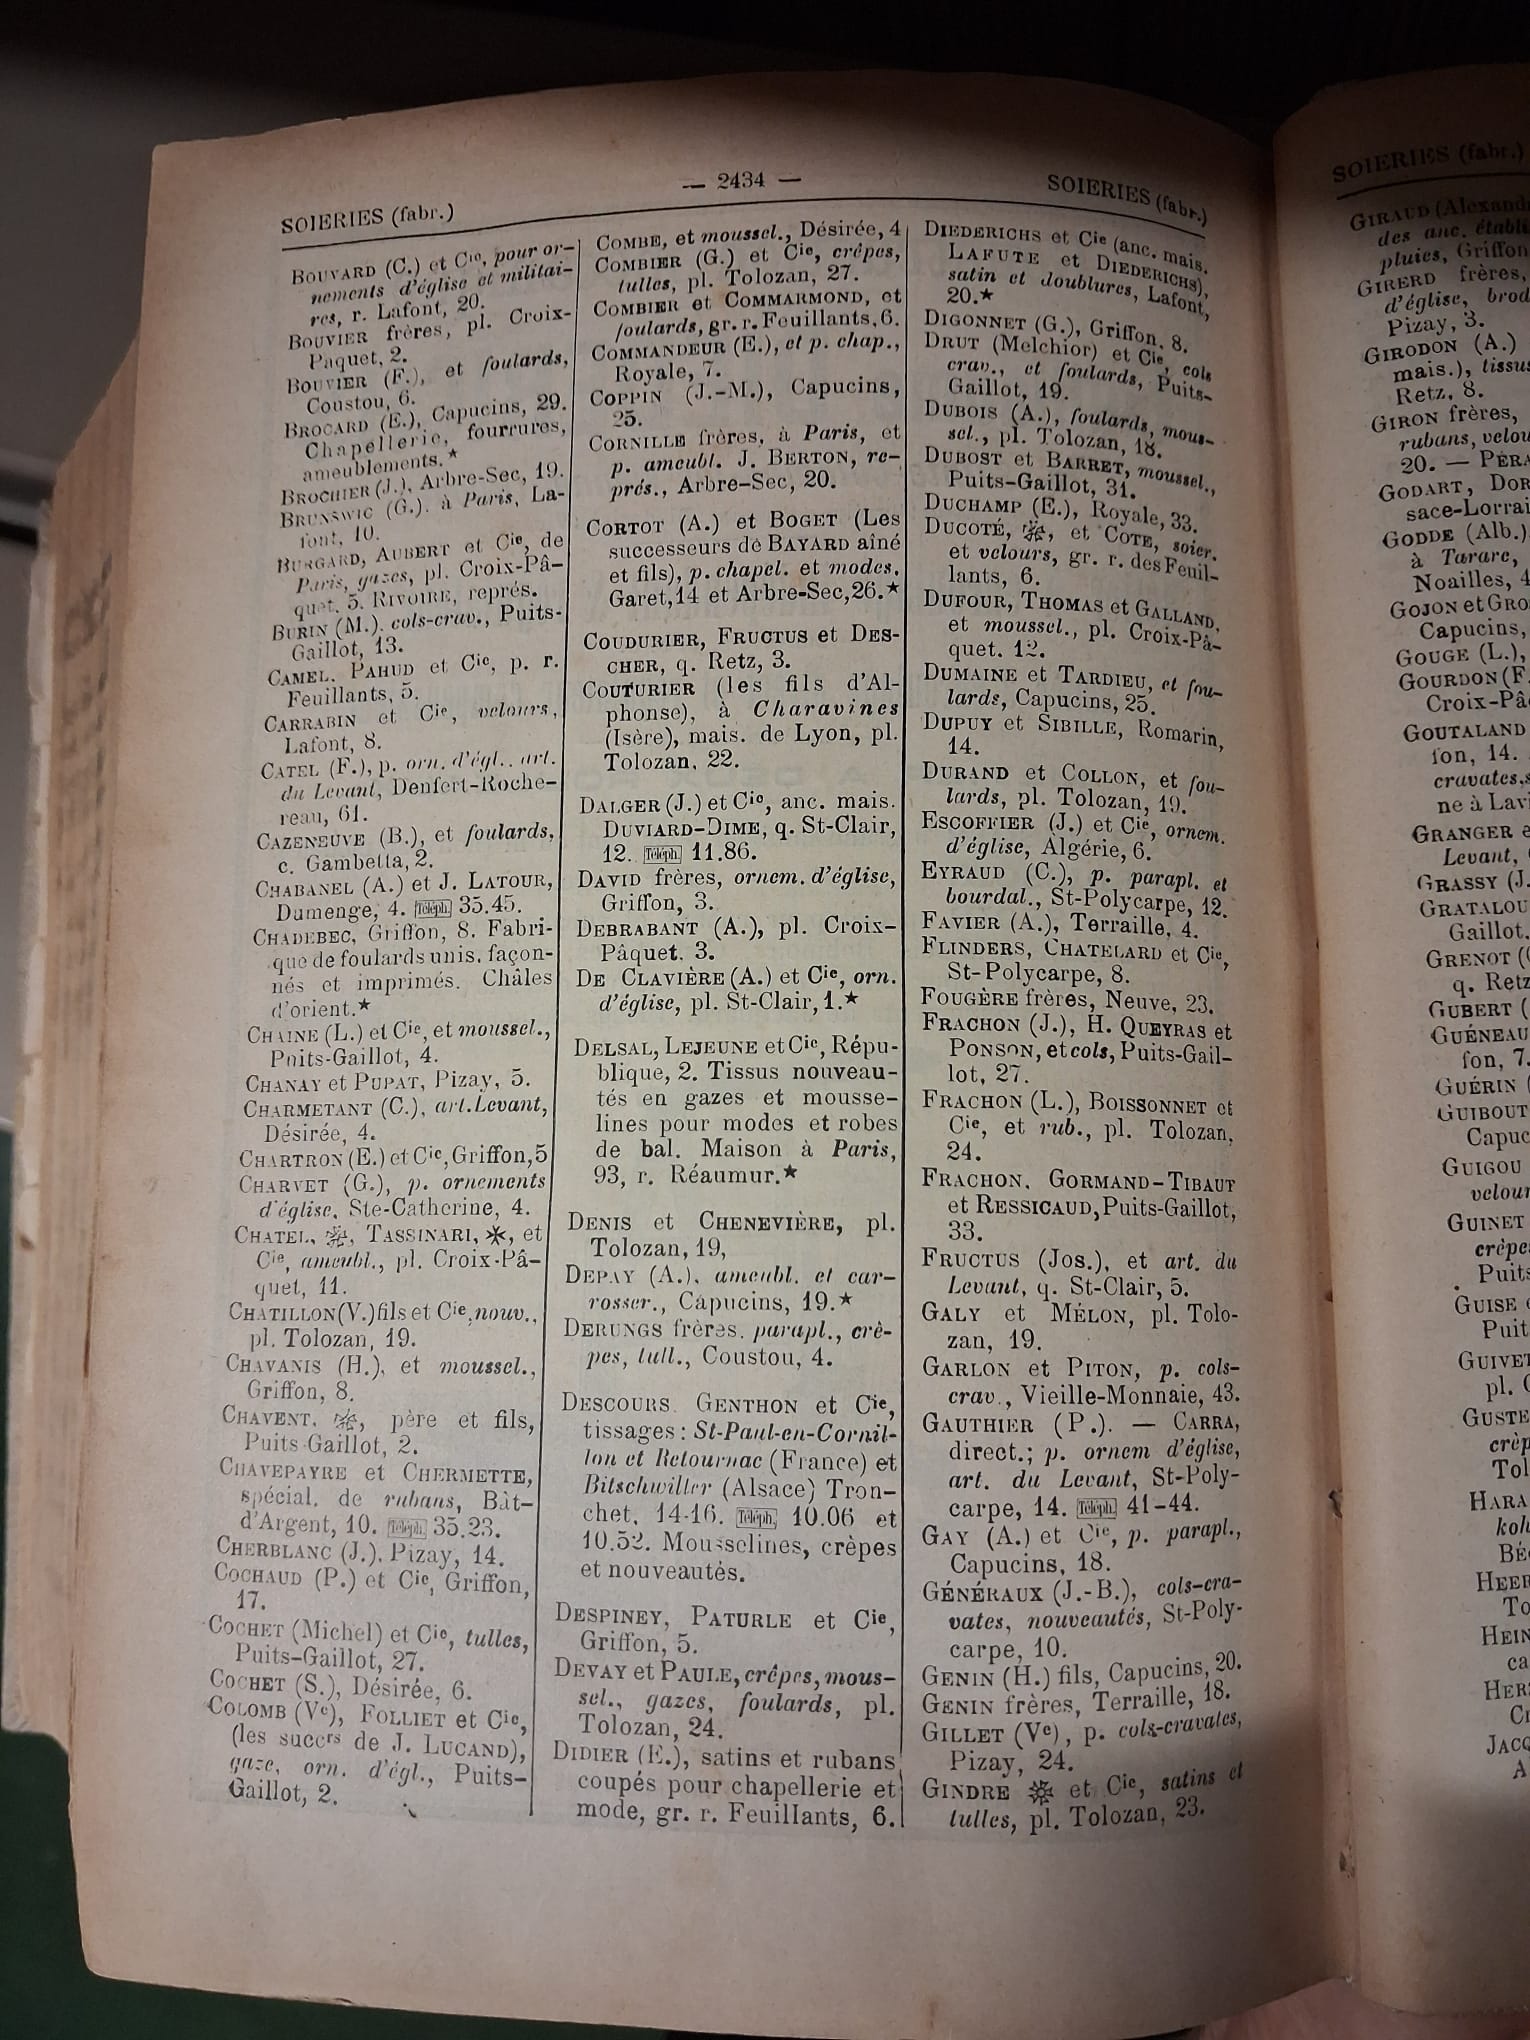 — 2434 —
SOIERIES (fabr.)
SOIERIES (fabr.)
BOUVARD (C.) et Cie, pour or-
nements d'église et militai-
res, r. Lafont, 20.
BOUVIER frères, pl. Croix-
Paquet, 2.
BOUVIER (F.), et foulards,
Coustou, 6.
BROCARD (E.), Capucins, 29.
Chapellerie, fourrures,
ameublements.★
BROCHIER (J.), Arbre-Sec, 19.
BRUNSWIC (G.). à Paris, La-
font, 10.
BURGARD, AUBERT et Cie, de
Paris, gazes, pl. Croix-Pâ-
quet. 5. RIVOIRE, représ.
BURIN (M.). cols-crav., Puits-
Gaillot, 13.
CAMEL. PAHUD et Cie, p. r.
Feuillants, 5.
CARRABIN et Cie, velours,
Lafont, 8.
CATEL (F.), p. orn. d'égl.. art.
du Levant, Denfert-Roche-
reau, 61.
CAZENEUVE (B.), et foulards,
c. Gambetta, 2.
CHABANEL (A.) et J. LATOUR,
Dumenge, 4. Téléph. 35.45.
CHADEBEC, Griffon, 8. Fabri-
que de foulards unis. façon-
nés et imprimés. Châles
d'orient.★
CHAINE (L.) et Cie, et moussel.,
Puits-Gaillot, 4.
CHANAY et PUPAT, Pizay, 5.
CHARMETANT (C.), art.Levant,
Désirée, 4.
CHARTRON (E.) et Cie, Griffon, 5
CHARVET (G.), p. ornements
d'église, Ste-Catherine, 4.
CHATEL, ❋, TASSINARI, ✻, et
Cie, ameubl., pl. Croix-Pâ-
quet, 11.
CHATILLON (V.) fils et Cie, nouv.,
pl. Tolozan, 19.
CHAVANIS (H.), et moussel.,
Griffon, 8.
CHAVENT, ❋, père et fils,
Puits-Gaillot, 2.
CHAVEPAYRE et CHERMETTE,
spécial. de rubans, Bât-
d'Argent, 10. Téléph. 35.23.
CHERBLANC (J.), Pizay, 14.
COCHAUD (P.) et Cie, Griffon,
17.
COCHET (Michel) et Cie, tulles,
Puits-Gaillot, 27.
COCHET (S.), Désirée, 6.
COLOMB (Ve), FOLLIET et Cie,
(les succrs de J. LUCAND),
gaze, orn. d'égl., Puits-
Gaillot, 2.
COMBE, et moussel., Désirée, 4
COMBIER (G.) et Cie, crêpes,
tulles, pl. Tolozan, 27.
COMBIER et COMMARMOND, et
foulards, gr. r. Feuillants, 6.
COMMANDEUR (E.), et p. chap.,
Royale, 7.
COPPIN (J.-M.), Capucins,
25.
CORNILLE frères, à Paris, et
p. ameubl. J. BERTON, re-
prés., Arbre-Sec, 20.
CORTOT (A.) et BOGET (Les
successeurs de BAYARD aîné
et fils), p. chapel. et modes.
Garet, 14 et Arbre-Sec, 26.★
COUDURIER, FRUCTUS et DES-
CHER, q. Retz, 3.
COUTURIER (les fils d'Al-
phonse), à Charavines
(Isère), mais. de Lyon, pl.
Tolozan. 22.
DALGER (J.) et Cie, anc. mais.
DUVIARD-DIME, q. St-Clair,
12. Téléph. 11.86.
DAVID frères, ornem. d'église,
Griffon, 3.
DEBRABANT (A.), pl. Croix-
Pâquet. 3.
DE CLAVIÈRE (A.) et Cie, orn.
d'église, pl. St-Clair, 1.★
DELSAL, LEJEUNE et Cie, Répu-
blique, 2. Tissus nouveau-
tés en gazes et mousse-
lines pour modes et robes
de bal. Maison à Paris,
93, r. Réaumur.★
DENIS et CHENEVIÈRE, pl.
Tolozan, 19,
DEPAY (A.). ameubl. et car-
rosser., Capucins, 19.★
DERUNGS frères. parapl., crê-
pes, tull., Coustou, 4.
DESCOURS. GENTHON et Cie,
tissages : St-Paul-en-Cornil-
lon et Retournac (France) et
Bitschwiller (Alsace) Tron-
chet. 14-16. Téléph. 10.06 et
10.52. Mousselines, crèpes
et nouveautés.
DESPINEY, PATURLE et Cie,
Griffon, 5.
DEVAY et PAULE, crêpes, mous-
sel., gazes, foulards, pl.
Tolozan, 24.
DIDIER (E.), satins et rubans
coupés pour chapellerie et
mode, gr. r. Feuillants, 6.
DIEDERICHS et Cie (anc. mais.
LAFUTE et DIEDERICHS),
satin et doublures, Lafont,
20.★
DIGONNET (G.), Griffon, 8.
DRUT (Melchior) et Cie, cols
crav., et foulards, Puits-
Gaillot, 19.
DUBOIS (A.), foulards, mous-
sel., pl. Tolozan, 18.
DUBOST et BARRET, moussel.,
Puits-Gaillot, 31.
DUCHAMP (E.), Royale, 33.
DUCOTÉ, ❋, et COTE, soier.
et velours, gr. r. des Feuil-
lants, 6.
DUFOUR, THOMAS et GALLAND,
et moussel., pl. Croix-Pâ-
quet. 12.
DUMAINE et TARDIEU, et fou-
lards, Capucins, 25.
DUPUY et SIBILLE, Romarin,
14.
DURAND et COLLON, et fou-
lards, pl. Tolozan, 19.
ESCOFFIER (J.) et Cie, ornem.
d'église, Algérie, 6.
EYRAUD (C.), p. parapl. et
bourdal., St-Polycarpe, 12.
FAVIER (A.), Terraille, 4.
FLINDERS, CHATELARD et Cie,
St-Polycarpe, 8.
FOUGÈRE frères, Neuve, 23.
FRACHON (J.), H. QUEYRAS et
PONSON, et cols, Puits-Gail-
lot, 27.
FRACHON (L.), BOISSONNET et
Cie, et rub., pl. Tolozan,
24.
FRACHON. GORMAND-TIBAUT
et RESSICAUD, Puits-Gaillot,
33.
FRUCTUS (Jos.), et art. du
Levant, q. St-Clair, 5.
GALY et MÉLON, pl. Tolo-
zan, 19.
GARLON et PITON, p. cols-
crav., Vieille-Monnaie, 43.
GAUTHIER (P.). — CARRA,
direct.; p. ornem d'église,
art. du Levant, St-Poly-
carpe, 14. Téléph. 41-44.
GAY (A.) et Cie, p. parapl.,
Capucins, 18.
GÉNÉRAUX (J.-B.), cols-cra-
vates, nouveautés, St-Poly-
carpe, 10.
GENIN (H.) fils, Capucins, 20.
GENIN frères, Terraille, 18.
GILLET (Ve), p. cols-cravates,
Pizay, 24.
GINDRE ❋ et Cie, satins et
tulles, pl. Tolozan, 23.
SOIERIES (fabr.)
GIRAUD (Alexand
des anc. établi
pluies, Griffon
GIRERD frères,
d'église, brod
Pizay, 3.
GIRODON (A.)
mais.), tissus
Retz, 8.
GIRON frères,
rubans, velou
20. — PÉRA
GODART, DOR
sace-Lorrai
GODDE (Alb.)
à Tarare,
Noailles, 4
GOJON et GRO
Capucins,
GOUGE (L.),
GOURDON (F.
Croix-Pâ
GOUTALAND
fon, 14.
cravates,s
ne à Lavi
GRANGER e
Levant,
GRASSY (J.
GRATALOU
Gaillot.
GRENOT (
q. Retz
GUBERT (
GUÉNEAU
fon, 7.
GUÉRIN (
GUIBOUT
Capuc
GUIGOU
velour
GUINET
crêpe
Puits
GUISE
Puit
GUIVET
pl. C
GUSTE
crêp
Tol
HARA
koh
BÉ
HEER
To
HEIN
ca
HER
C
JACQ
A